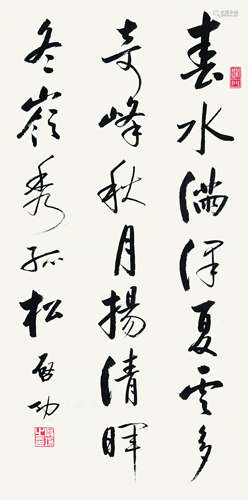 春水满泽夏云多
奇峰秋月揚清晖
冬嶺秀孤松 启功